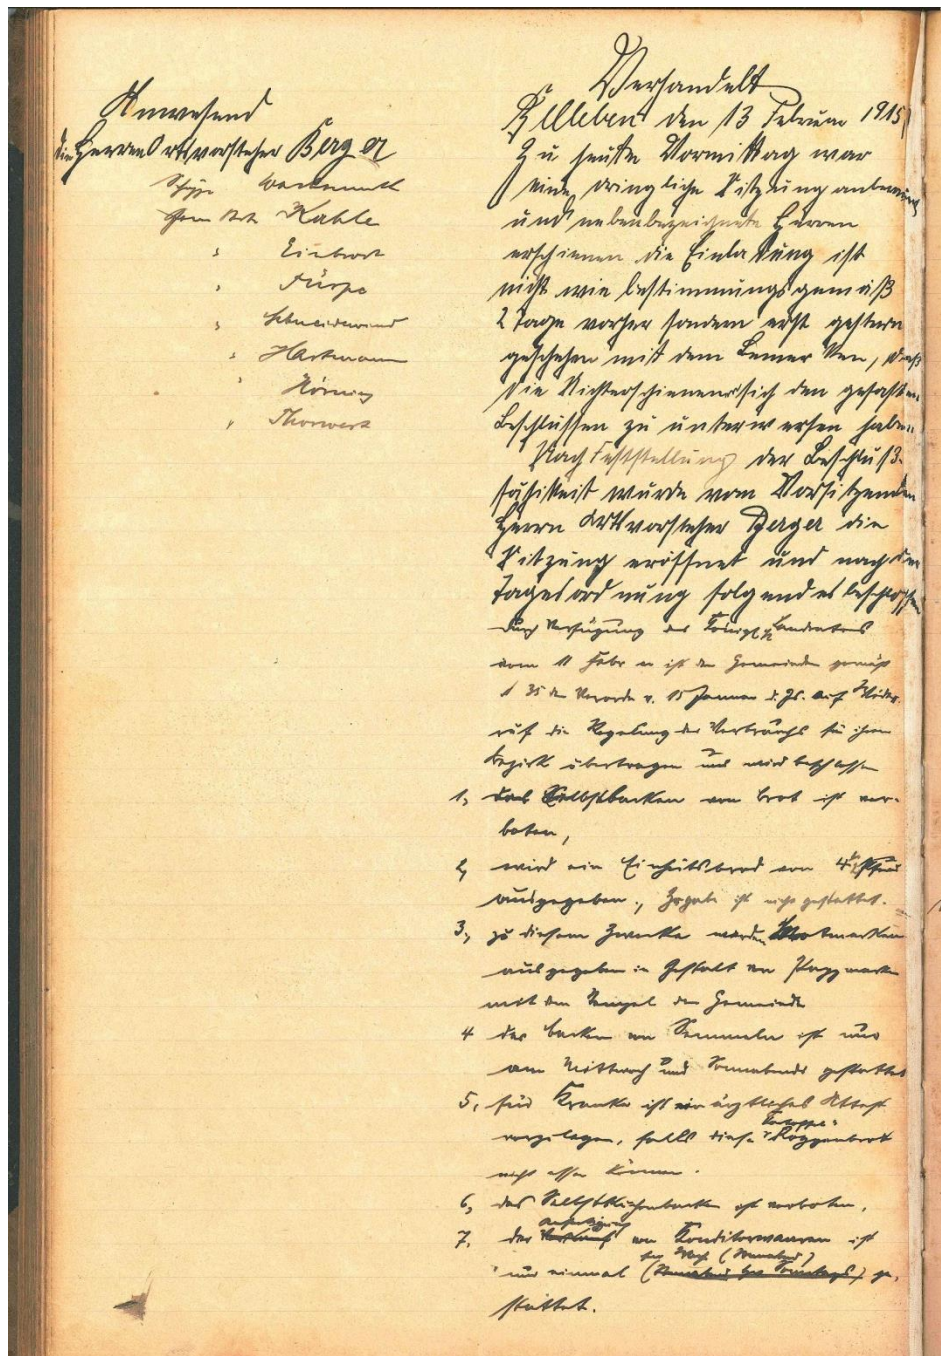 Anwesend
die Herren Ortsvorsteher Berger
Schöppe Wackernuth
Gem Vert Kahle
" Einbrot
" Fürpe
" Schneidewind
" Hartmann
" Hörning
" Thorwert
Verhandelt
Elleben den 13 Februar 1915
Zu heute Vormittag war
eine dringliche Sitzung anberaumt
und nebenbezeichnete Herren
erschienen die Einladung ist
nicht wie bestimmungsgemäß
2 Tage vorher sondern erst gestern
geschehen mit dem Bemerken, daß
die Nichterschienenen sich den gefaßten
Beschlüssen zu unterwerfen haben.
Nach Feststellung der Beschluß-
fähigkeit wurde vom Vorsitzenden
Herrn Ortsvorsteher Berger die
Sitzung eröffnet und nach der
Tagesordnung folgendes beschlossen
Durch Verfügung des Königl. Landrates
vom 11 Febr er ist den Gemeinden gemäß
§ 35 der Verordn v. 25 Januar d. Js. auf Wider-
ruf die Regelung des Verbrauchs für ihren
Bezirk übertragen und wird beschlossen
1, das Selbstbacken von Brot ist ver-
boten,
2, wird ein Einheitsbrod von 4 Pfund
ausgegeben, Zugabe ist nicht gestattet.
3, zu diesem Zwecke werden Brotmarken
ausgegeben in Gestalt von Pappmarken
mit dem Stempel der Gemeinde
4 das Backen von Semmeln ist nur
am Mittwoch und Sonnabends gestattet
5, für Kranke ist ein ärztliches Attest
vorzulegen, falls diese Roggenbrot
nicht essen können.
6, das Selbstkuchenbacken ist verboten,
7, der Verkauf von Konditorwaaren ist
nur einmal (Sonnabend) ge-
stattet.